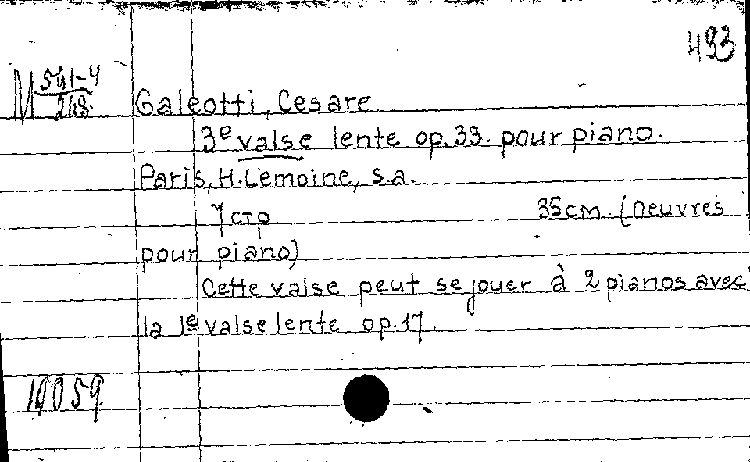 493
M 541-4
248
Galeotti, Cesare
3e valse lente op.33. pour piano.
Paris, H. Lemoine, s.a.
7 стр 35см. (Oeuvres
pour piano)
Cette valse peut se jouer à 2 pianos avec
la 1e valse lente op.17.
10059